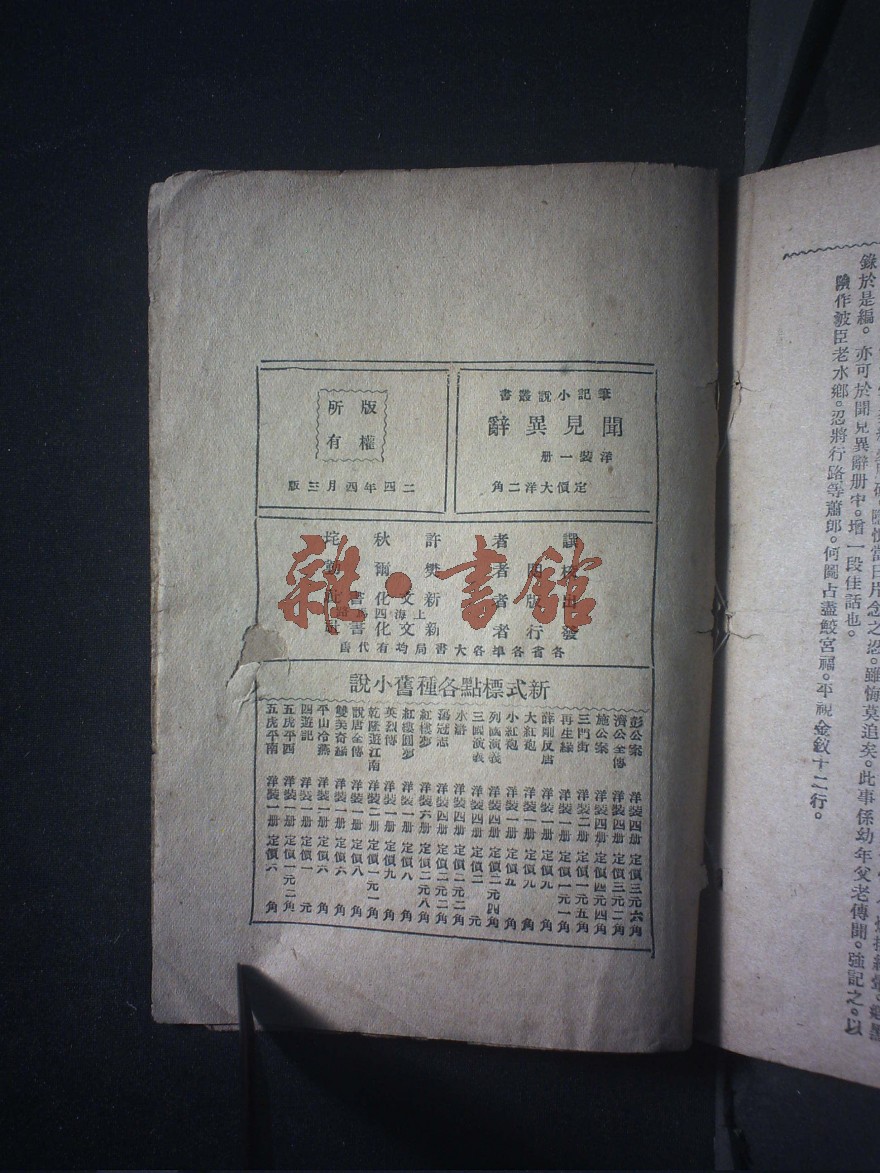 錄於是編。亦可於聞見異辭册中。增一段佳話也。
險作波臣老水鄉。忍將行路等蕭郎。何圖占盡鮫宮福。平視金釵十二行。
筆記小說叢書
聞見異辭
洋裝一册
定價大洋二角
版權所有
二四年四月三版
譔者 許秋垞
校閱者 樊爾勤
出版者 新文化書社
上海四馬路
發行者 新文化書社
各省各埠各大書局均有代售
雜·書館
新式標點各種舊小說
彭公案 洋裝四册 定價三元六角
濟公全傳 洋裝四册 定價三元二角
施公案 洋裝四册 定價四元四角
三門街 洋裝二册 定價一元五角
再生緣 洋裝一册 定價一元一角
薛剛反唐 洋裝一册 定價九角
大紅袍 洋裝一册 定價九角
小紅袍 洋裝一册 定價五角
列國演義 洋裝四册 定價二元四角
三國演義 洋裝四册 定價二元
水滸 洋裝四册 定價二元二角
蕩寇志 洋裝四册 定價二元二角
紅樓夢 洋裝六册 定價二元八角
紅樓圓夢 洋裝一册 定價八角
英烈傳 洋裝一册 定價九角
乾隆遊江南 洋裝二册 定價一元一角
說唐全傳 洋裝一册 定價八角
雙美奇緣 洋裝一册 定價六角
平山冷燕 洋裝一册 定價六角
四遊記 洋裝一册 定價一元
五虎平西 洋裝一册 定價一元二角
五虎平南 洋裝一册 定價六角